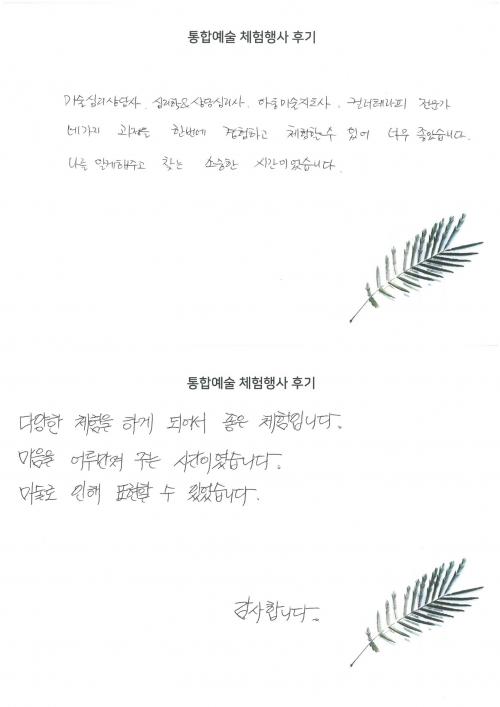 통합예술 체험행사 후기
미술심리상담사, 심리학으 상담심리사, 아동미술지도사, 컬러테라피 전문가
네가지 과정을 한번에 경험하고 체험할수 있어 너무 좋았습니다.
나를 알게해주고 찾는 소중한 시간이었습니다.
통합예술 체험행사 후기
다양한 체험을 하게 되어서 좋은 체험입니다.
마음을 어루만져 주는 시간이였습니다.
미술로 인해 표현할 수 있었습니다.
감사합니다.